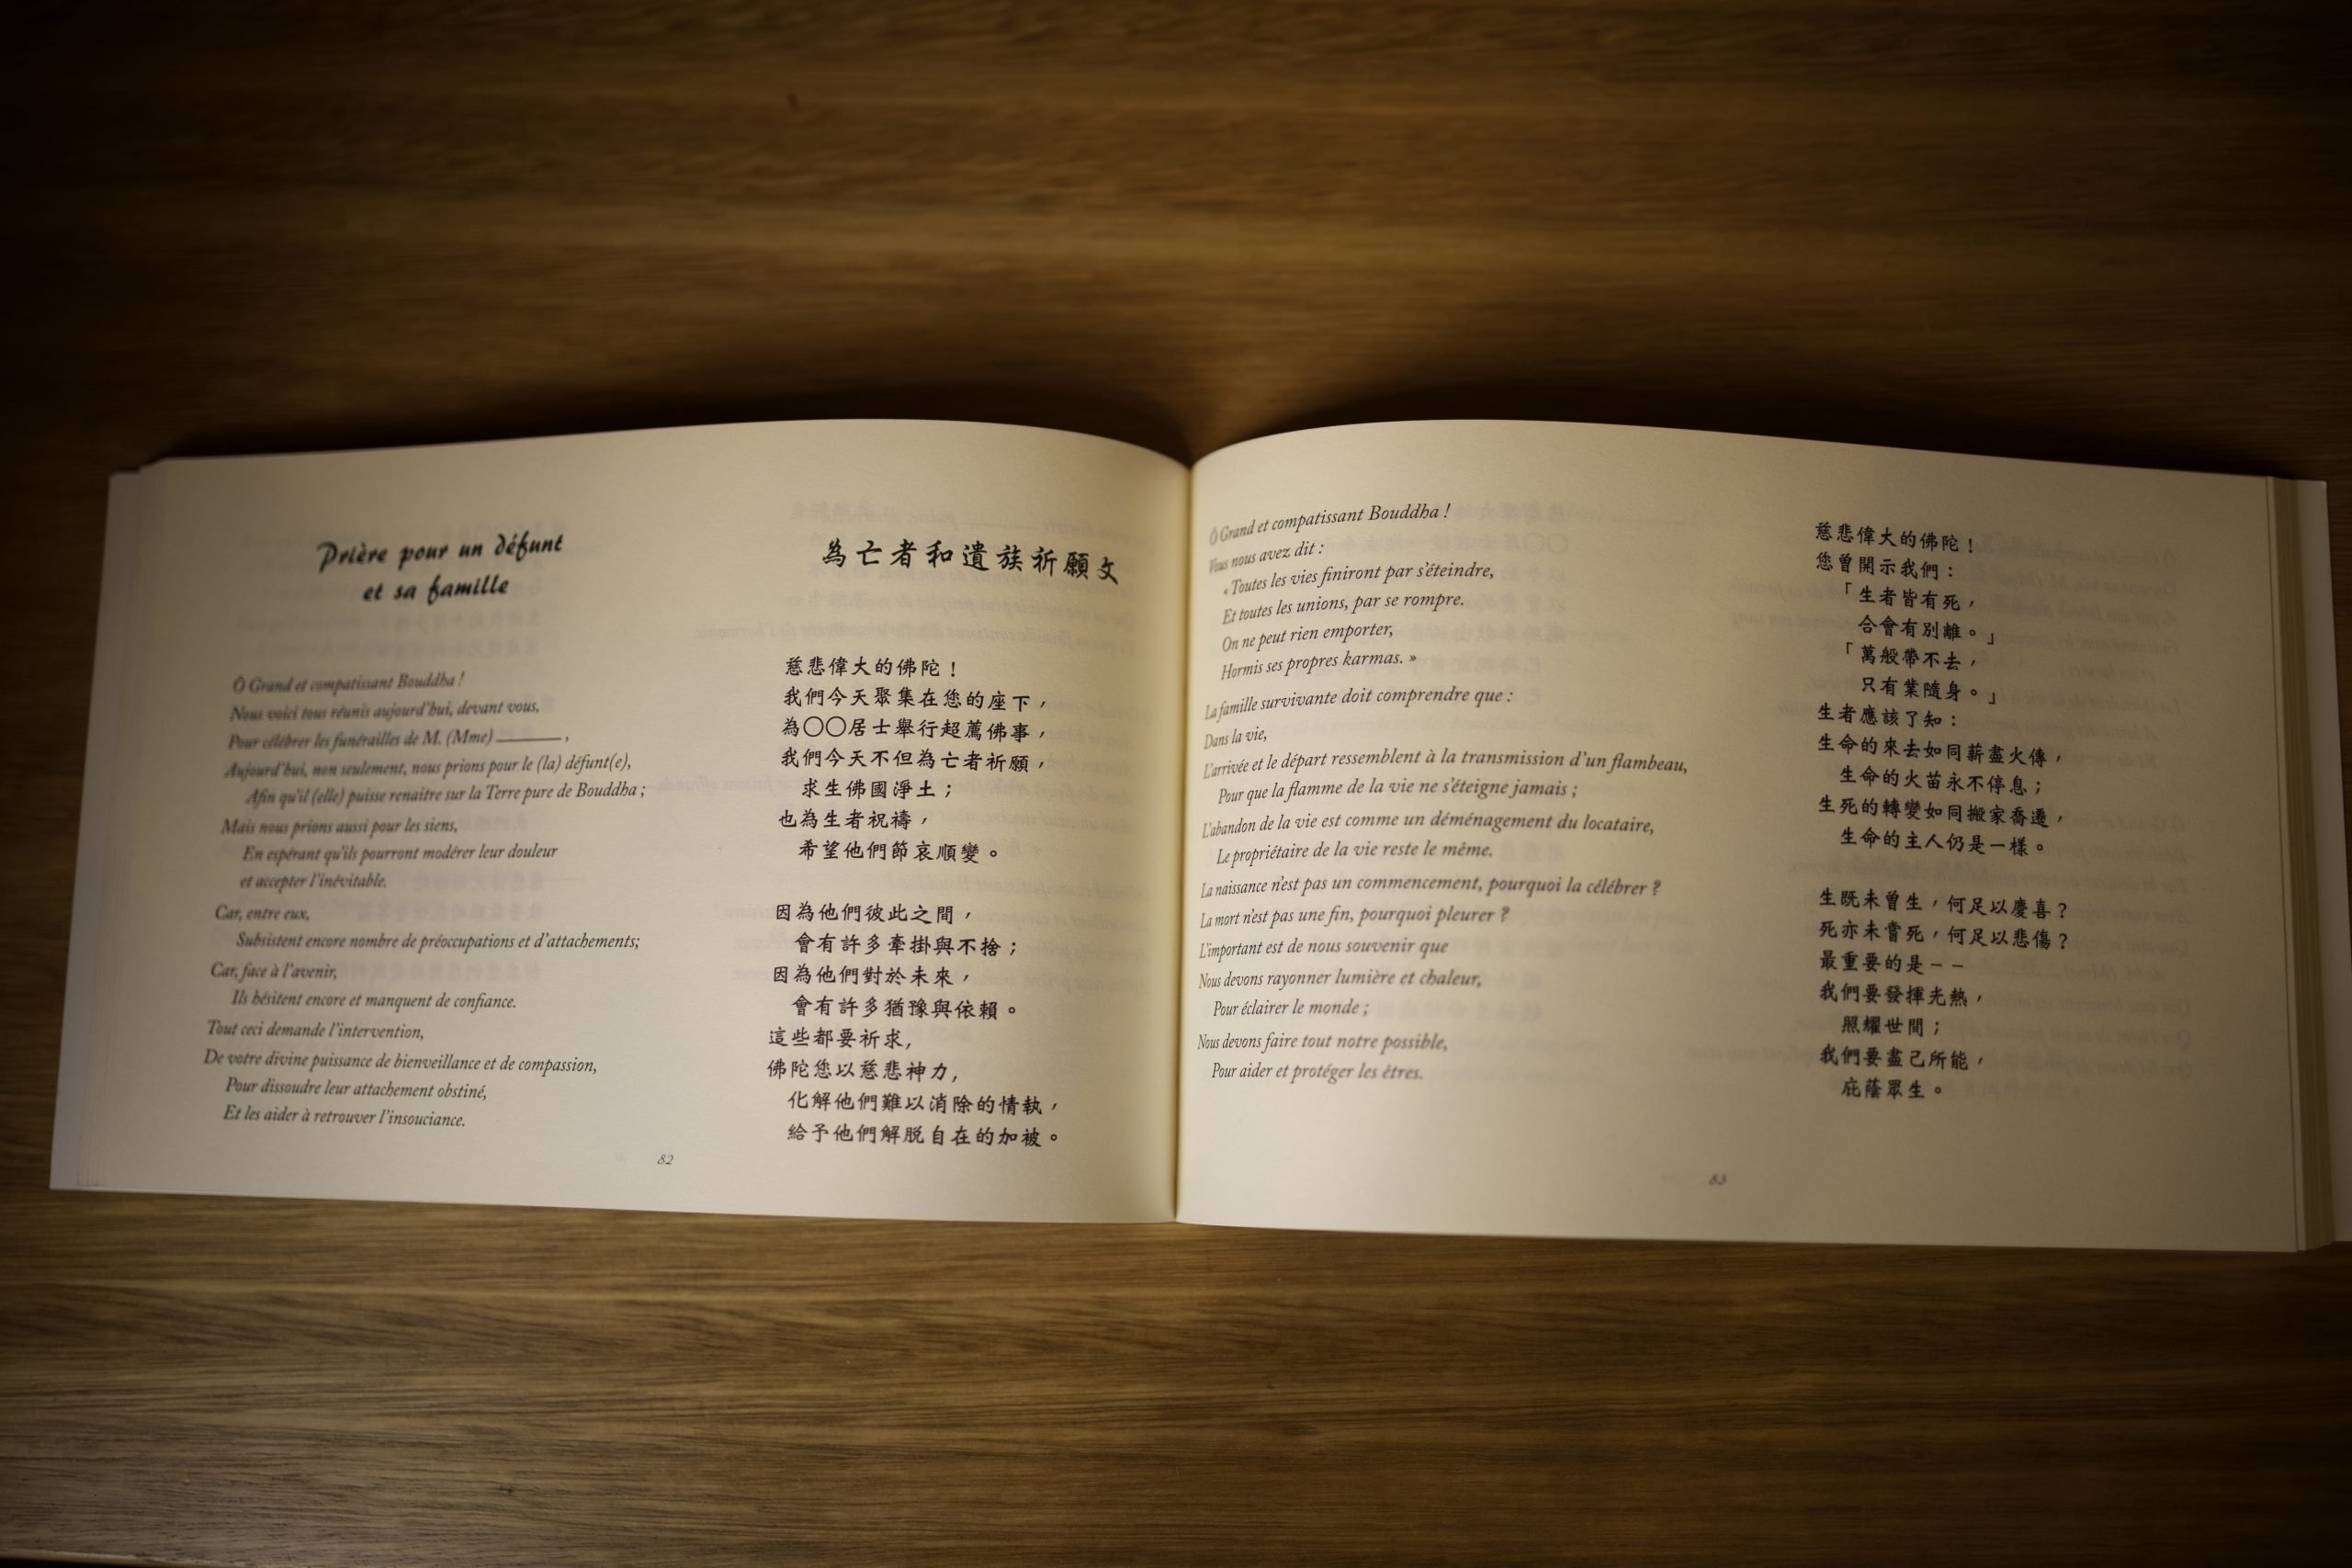 Prière pour un défunt
et sa famille
Ô Grand et compatissant Bouddha !
Nous voici tous réunis aujourd'hui, devant vous,
Pour célébrer les funérailles de M. (Mme) ________ ,
Aujourd'hui, non seulement, nous prions pour le (la) défunt(e),
Afin qu'il (elle) puisse renaitre sur la Terre pure de Bouddha ;
Mais nous prions aussi pour les siens,
En espérant qu'ils pourront modérer leur douleur
et accepter l'inévitable.
Car, entre eux,
Subsistent encore nombre de préoccupations et d'attachements;
Car, face à l'avenir,
Ils hésitent encore et manquent de confiance.
Tout ceci demande l'intervention,
De votre divine puissance de bienveillance et de compassion,
Pour dissoudre leur attachement obstiné,
Et les aider à retrouver l'insouciance.
為亡者和遺族祈願文
慈悲偉大的佛陀！
我們今天聚集在您的座下，
為○○居士舉行超薦佛事，
我們今天不但為亡者祈願，
求生佛國淨土；
也為生者祝禱，
希望他們節哀順變。
因為他們彼此之間，
會有許多牽掛與不捨；
因為他們對於未來，
會有許多猶豫與依賴。
這些都要祈求,
佛陀您以慈悲神力,
化解他們難以消除的情執，
給予他們解脱自在的加被。
82
Ô Grand et compatissant Bouddha !
Vous nous avez dit :
« Toutes les vies finiront par s'éteindre,
Et toutes les unions, par se rompre.
On ne peut rien emporter,
Hormis ses propres karmas. »
La famille survivante doit comprendre que :
Dans la vie,
L'arrivée et le départ ressemblent à la transmission d'un flambeau,
Pour que la flamme de la vie ne s'éteigne jamais ;
L'abandon de la vie est comme un déménagement du locataire,
Le propriétaire de la vie reste le même.
La naissance n'est pas un commencement, pourquoi la célébrer ?
La mort n'est pas une fin, pourquoi pleurer ?
L'important est de nous souvenir que
Nous devons rayonner lumière et chaleur,
Pour éclairer le monde ;
Nous devons faire tout notre possible,
Pour aider et protéger les êtres.
慈悲偉大的佛陀！
您曾開示我們：
「生者皆有死，
合會有別離。」
「萬般帶不去，
只有業隨身。」
生者應該了知：
生命的來去如同薪盡火傳，
生命的火苗永不停息；
生死的轉變如同搬家喬遷，
生命的主人仍是一樣。
生既未曾生，何足以慶喜？
死亦未嘗死，何足以悲傷？
最重要的是－－
我們要發揮光熱，
照耀世間；
我們要盡己所能，
庇蔭眾生。
83